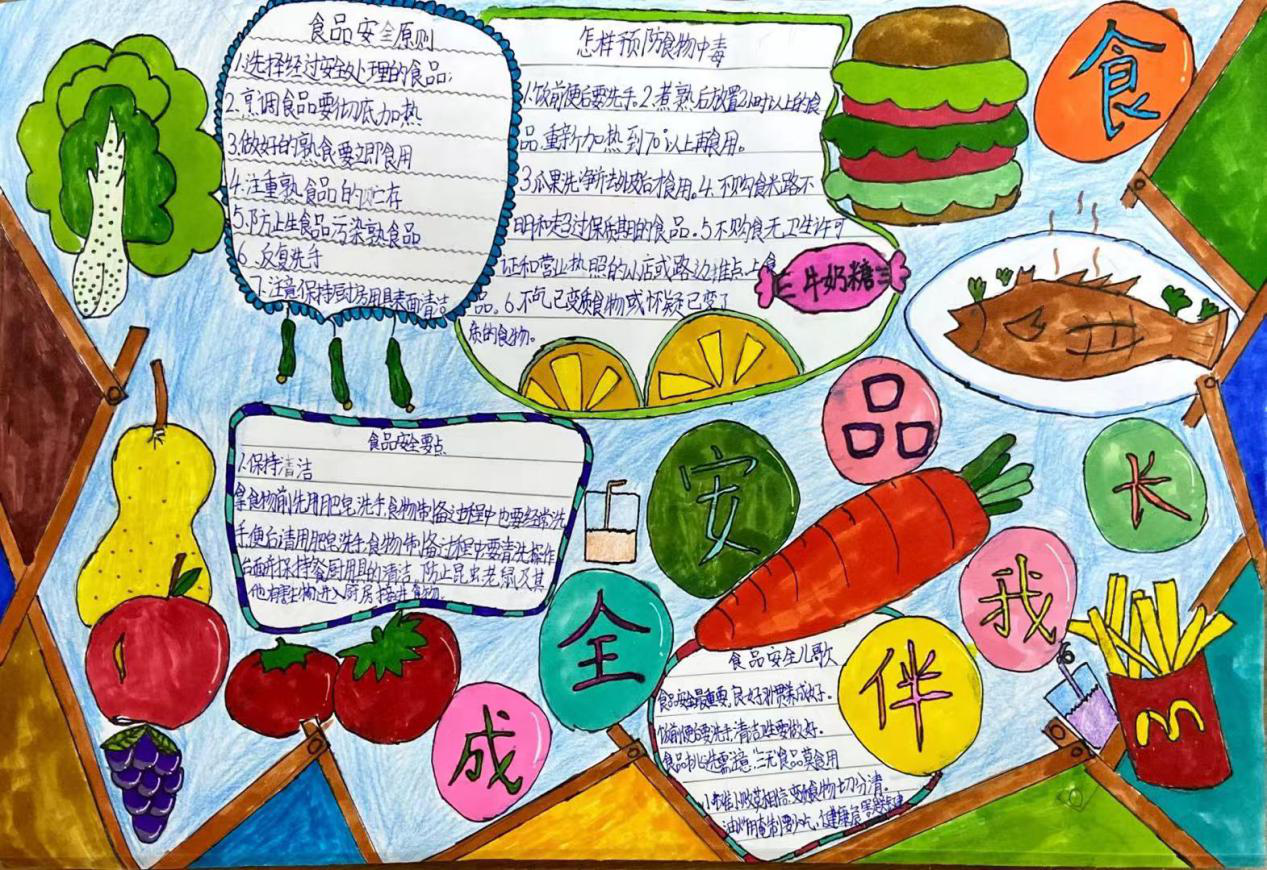 食品安全原则
1.选择经过安全处理的食品;
2.烹调食品要彻底加热
3.做好的熟食要立即食用
4.注重熟食品的贮存
5.防止生食品污染熟食品
6.反复洗手
7.注意保持厨房用具表面清洁
怎样预防食物中毒
1.饭前便后要洗手。2.煮熟后放置2小时以上的食
品,重新加热到70°以上再食用。
3瓜果洗净并去皮后才食用。4.不购食来路不
明和超过保质期的食品。5不购食无卫生许可
证和营业热照的小店或路边堆点上食
品。6.不吃已变质食物或怀疑已变了
质的食物。
牛奶糖
食
品
安
全
伴
我
成
长
食品安全要点
1.保持清洁
拿食物前先用肥皂洗手食物准备过程中也要经常洗
手便后请用肥皂洗手,食物准备过程中要清洗操作
台面并保持餐厨用具的清洁,防止昆虫老鼠及其
他有害生物进入厨房接进食物。
食品安全儿歌
食品安全最重要,良好习惯养成好。
饭前便后要洗手,清洁卫生要做好。
食品挑选需注意,三无食品莫食用
切分清。
油炸腌制要少吃,
M